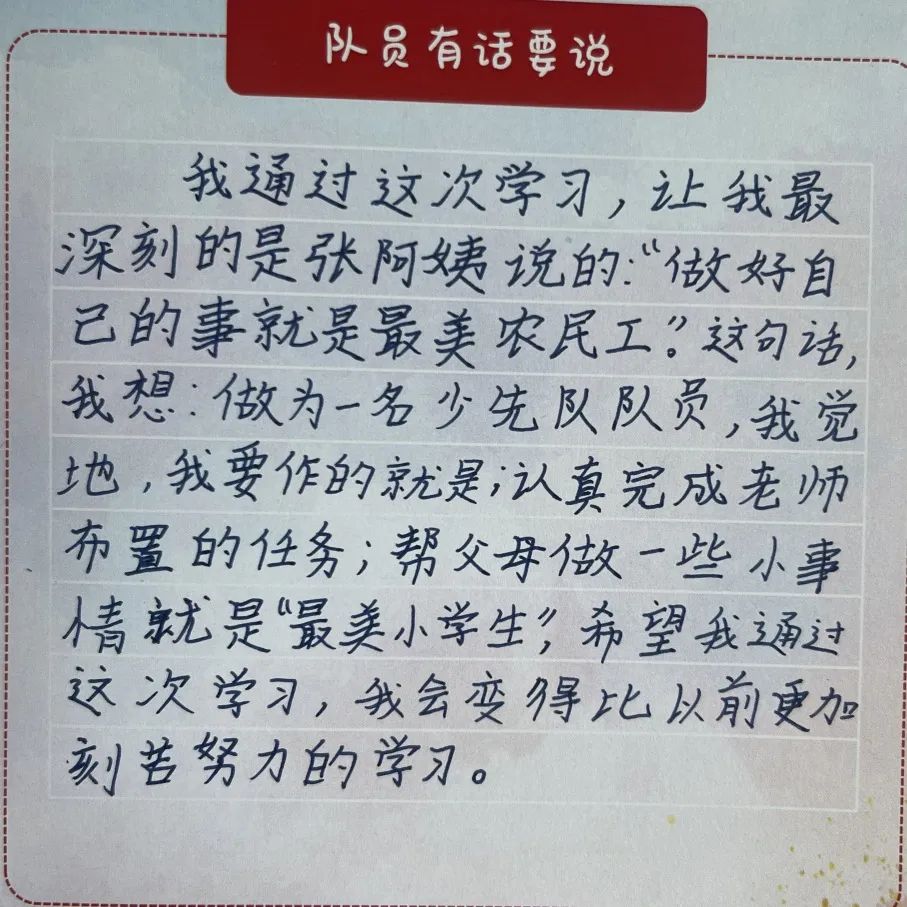 队员有话要说
我通过这次学习，让我最
深刻的是张阿姨说的:“做好自
己的事就是最美农民工”。这句话，
我想:做为一名少先队队员，我觉
地，我要作的就是;认真完成老师
布置的任务;帮父母做一些小事
情就是“最美小学生”，希望我通过
这次学习，我会变得比以前更加
刻苦努力的学习。